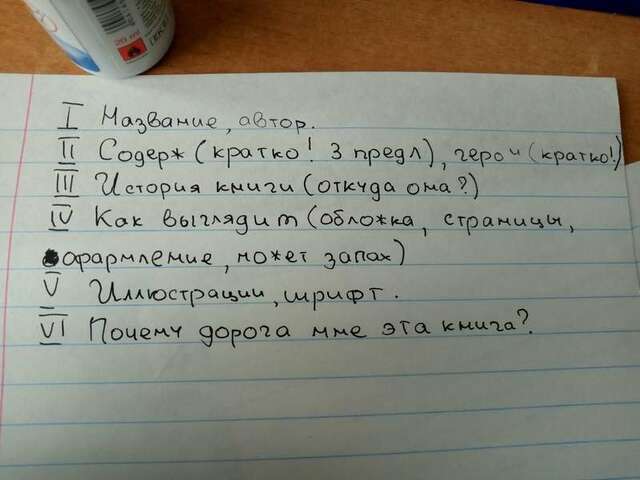 I Название, автор.
II Содерж (кратко! 3 предл), герои (кратко!)
III История книги (откуда она?)
IV Как выглядит (обложка, страницы,
офармление, может запах)
V Иллюстрации, шрифт.
VI Почему дорога мне эта книга?